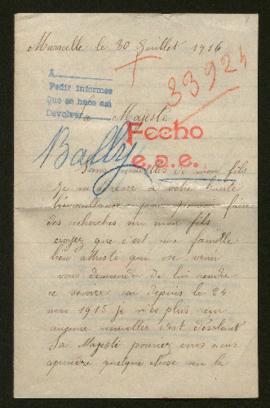 Marseille le 30 Juillet 1916
33924
A
Pedir informes
Que se hace así
Devolver
Majesté
Fecho
e.s.e.
Bally
Sans nouvelles de mon fils
je m'adresse à votre haute
bienveillance pour faire
des recherches sur mon fils
croyez que c'est une famille
bien attristée que se vous
vous demande de lui rendre
ce service car depuis le 24
1915 je n'ai plus reçu
aucune nouvelles c'est désolant
Sa Majesté pourrez vous nous
apprendre quelque chose sur le